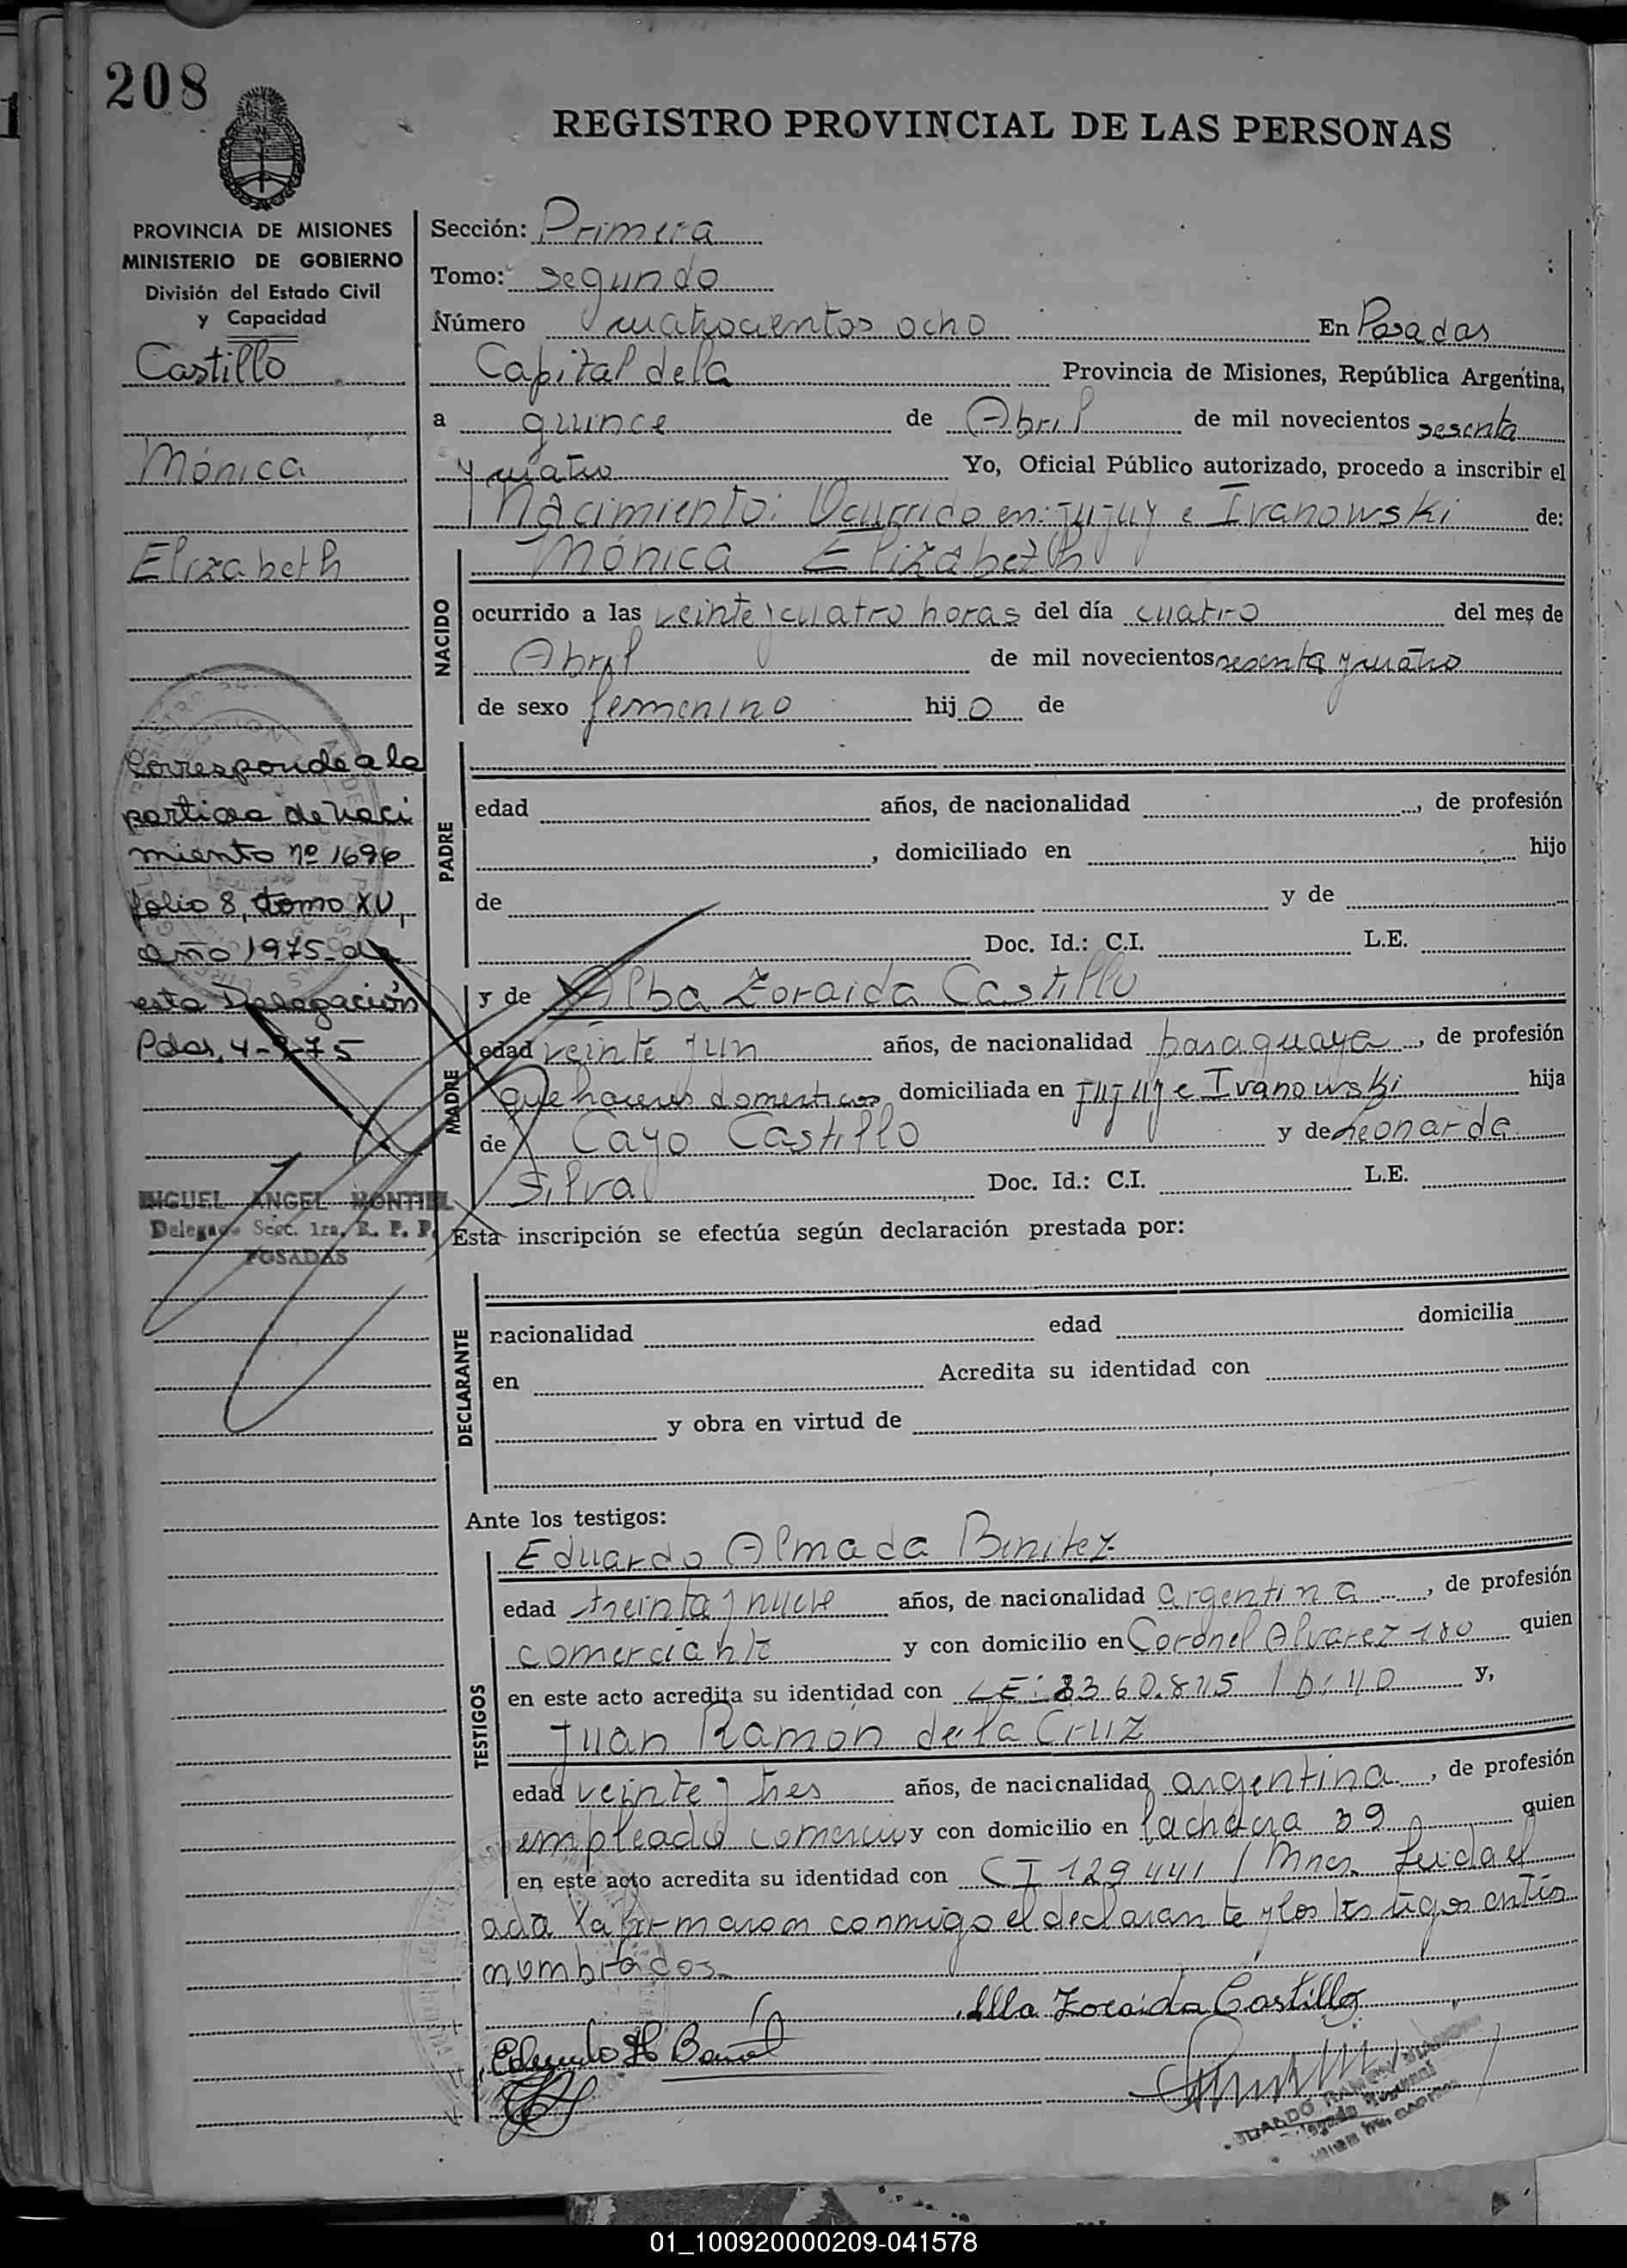 208
REGISTRO PROVINCIAL DE LAS PERSONAS
PROVINCIA DE MISIONES
MINISTERIO DE GOBIERNO
División del Estado Civil
y Capacidad
Castillo
Mónica
Elizabeth
Corresponde a la
partida de naci
miento nº 1696
folio 8, tomo XV,
año 1975 de
esta Delegación
Pdas, 4-9-75
MIGUEL ANGEL MONTIEL
Delegado Secc. 1ra. R. P. P.
POSADAS
Sección: Primera
Tomo: segundo
Número cuatrocientos ocho En Posadas
Capital de la Provincia de Misiones, República Argentina,
a quince de Abril de mil novecientos sesenta
y cuatro Yo, Oficial Público autorizado, procedo a inscribir el
Nacimiento: Ocurrido en: Jujuy e Ivanowski de:
NACIDO
Mónica Elizabeth
ocurrido a las veinte y cuatro horas del día cuatro del mes de
Abril de mil novecientos sesenta y cuatro
de sexo femenino hijo de
PADRE
edad años, de nacionalidad , de profesión
, domiciliado en hijo
de y de
Doc. Id.: C.I. L.E.
MADRE
y de Alba Zoraida Castillo
edad veinte y un años, de nacionalidad paraguaya, de profesión
quehaceres domesticos domiciliada en Jujuy e Ivanowski hija
de Cayo Castillo y de Leonarda
Silva Doc. Id.: C.I. L.E.
Esta inscripción se efectúa según declaración prestada por:
DECLARANTE
nacionalidad edad domicilia
en Acredita su identidad con
y obra en virtud de
Ante los testigos:
TESTIGOS
Eduardo Almada Benitez
edad treinta y nueve años, de nacionalidad argentina, de profesión
comerciante y con domicilio en Coronel Alvarez 180 quien
en este acto acredita su identidad con LE: y,
Juan Ramon de la Cruz
edad veinte y tres años, de nacionalidad argentina, de profesión
empleado comercio y con domicilio en lachacra 39 quien
en este acto acredita su identidad con CI 129441 / Mnes. Leida el
acta la firmaron conmigo el declarante y los testigos antes
nombrados
Alba Zoraida Castillo
01_100920000209-041578